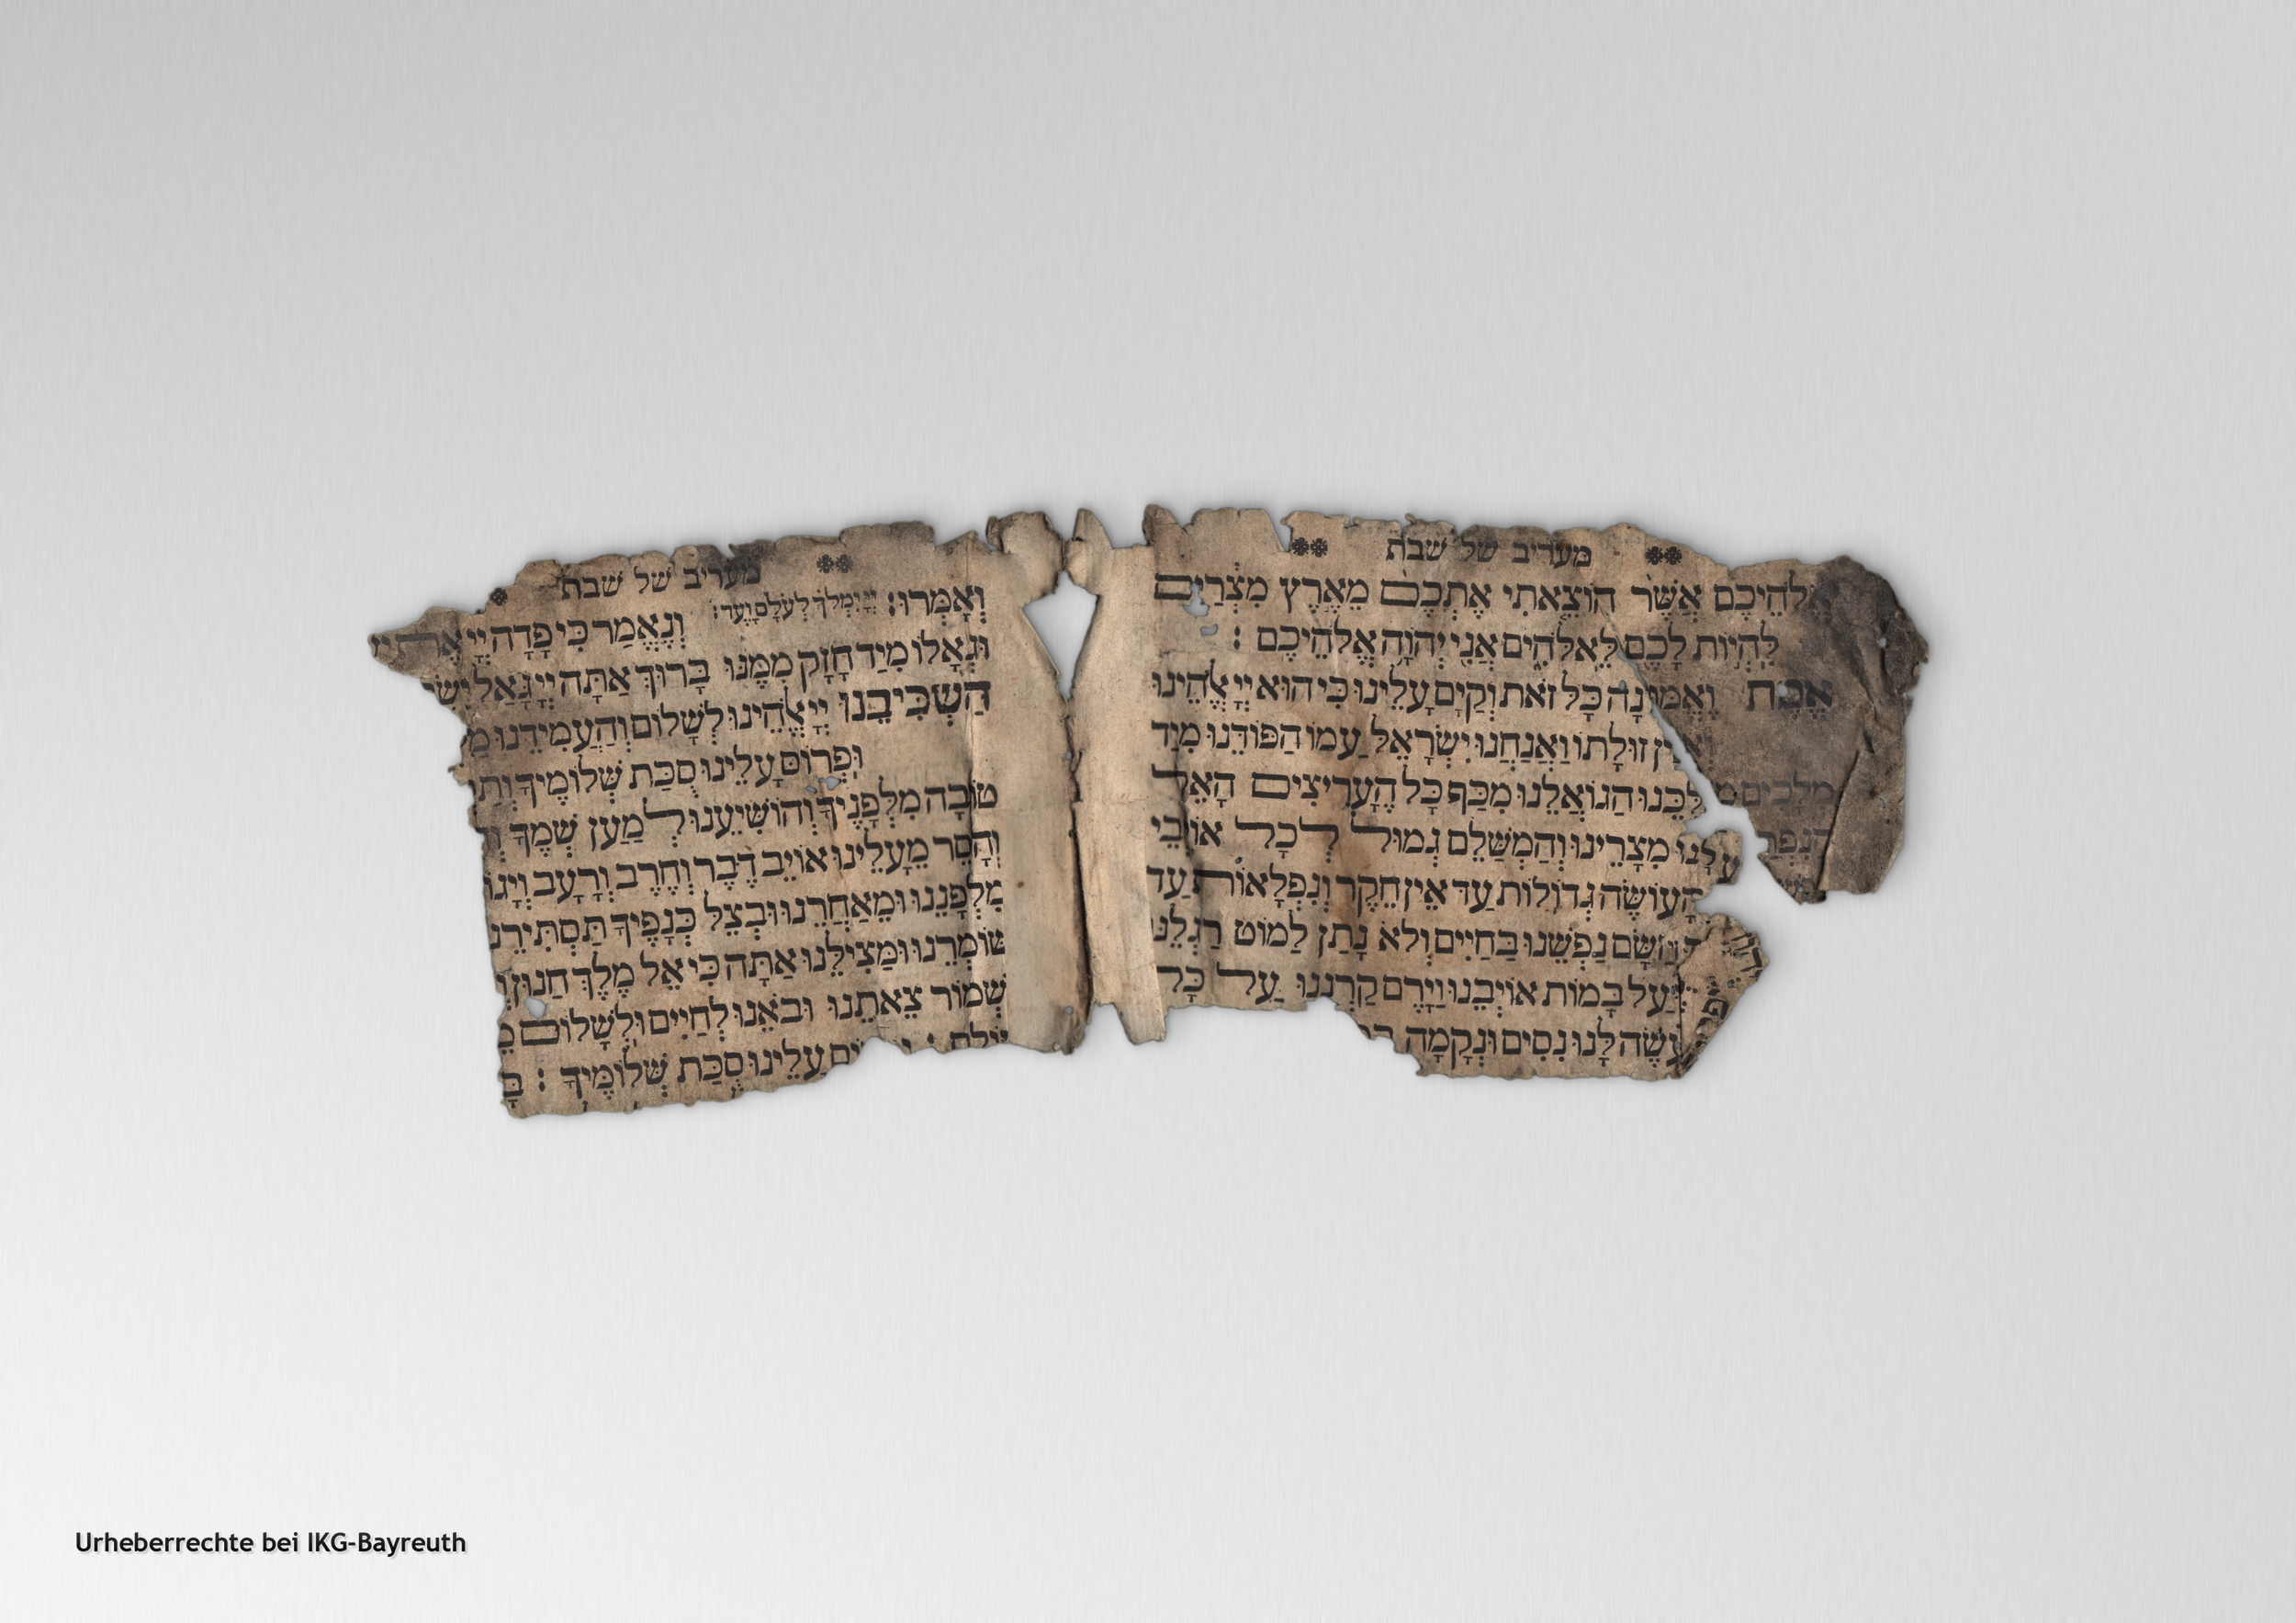 מעריב של שבת
אֱלֹהֵיכֶם אֲשֶׁר הוֹצֵאתִי אֶתְכֶם מֵאֶרֶץ מִצְרַיִם
לִהְיוֹת לָכֶם לֵאלֹהִים אֲנִי יְהוָה אֱלֹהֵיכֶם :
אֱמֶת וֶאֱמוּנָה כָּל זֹאת וְקַיָּם עָלֵינוּ כִּי הוּא יְיָ אֱלֹהֵינוּ
וְאֵין זוּלָתוֹ וַאֲנַחְנוּ יִשְׂרָאֵל עַמּוֹ הַפּוֹדֵנוּ מִיַּד
מְלָכִים מַלְכֵּנוּ הַגּוֹאֲלֵנוּ מִכַּף כָּל הֶעָרִיצִים הָאֵל
הַנִּפְרָ עָלֵנוּ מִצָּרֵינוּ וְהַמְשַׁלֵּם גְּמוּל לְכָל אוֹיְבֵי
הָעוֹשֶׂה גְדוֹלוֹת עַד אֵין חֵקֶר וְנִפְלָאוֹת עַד
הַשָּׂם נַפְשֵׁנוּ בַּחַיִּים וְלֹא נָתַן לַמּוֹט רַגְלֵנוּ
עַל בָּמוֹת אוֹיְבֵנוּ וַיָּרֶם קַרְנֵנוּ עַל כָּל
עֹשֶׂה לָּנוּ נִסִּים וּנְקָמָה
מעריב של שבת
וְאָמְרוּ: יְיָ יִמְלֹךְ לְעֹלָם וָעֶד: וְנֶאֱמַר כִּי פָדָה יְיָ אֶת יַ
וּגְאָלוֹ מִיַּד חָזָק מִמֶּנּוּ בָּרוּךְ אַתָּה יְיָ גָּאַל יִשׂ
הַשְׁכִּיבֵנוּ יְיָ אֱלֹהֵינוּ לְשָׁלוֹם וְהַעֲמִידֵנוּ מַ
וּפְרוֹס עָלֵינוּ סֻכַּת שְׁלוֹמֶיךָ וְתַ
טוֹבָה מִלְּפָנֶיךָ וְהוֹשִׁיעֵנוּ לְמַעַן שְׁמֶךָ וְ
וְהָסֵר מֵעָלֵינוּ אוֹיֵב דֶּבֶר וְחֶרֶב וְרָעָב וְיָגוֹ
מִלְּפָנֵנוּ וּמֵאַחֲרֵנוּ וּבְצֵל כְּנָפֶיךָ תַּסְתִּירֵנ
שׁוֹמְרֵנוּ וּמַצִּילֵנוּ אַתָּה כִּי אֵל מֶלֶךְ חַנּוּן וְ
שְׁמוֹר צֵאתֵנוּ וּבֹאֵנוּ לְחַיִּים וּלְשָׁלוֹם מֵ
עָלֵינוּ סֻכַּת שְׁלוֹמֶיךָ : בָּ
Urheberrechte bei IKG-Bayreuth